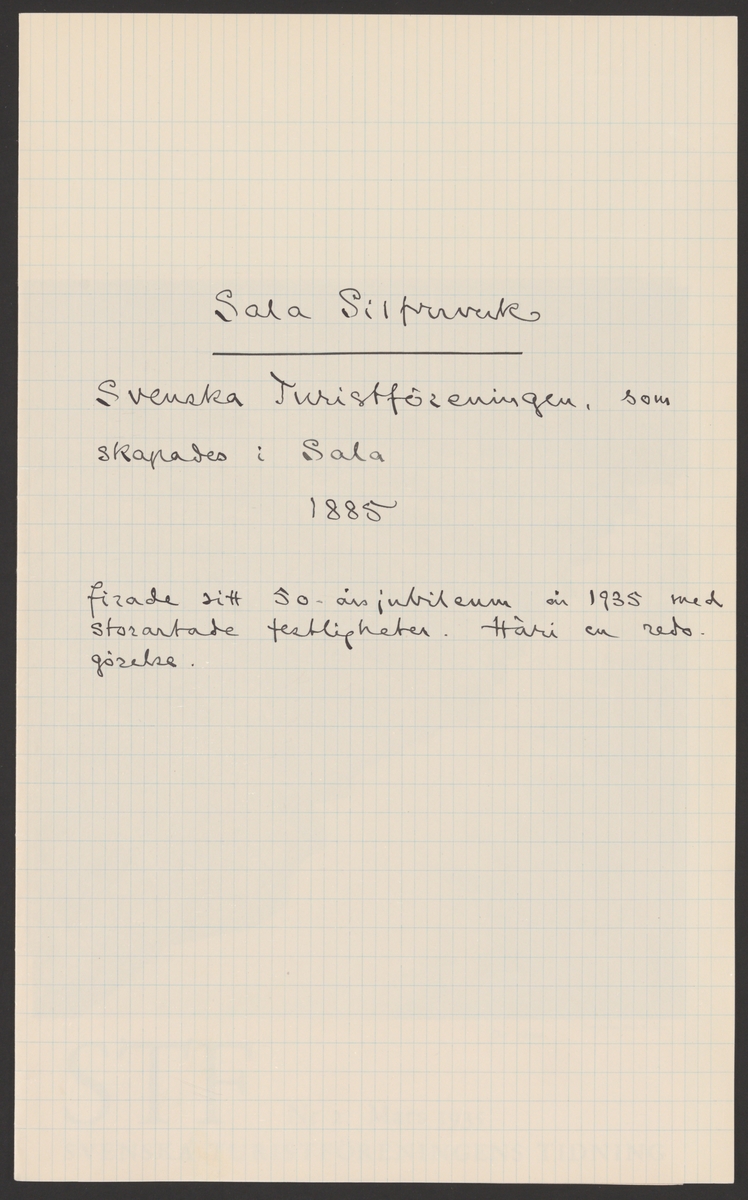 Sala Silfververk
Svenska Turistföreningen, som
skapades i Sala
1885
firade sitt 50-årsjubileum år 1935 med
storartade festligheter. Häri en redo-
görelse.